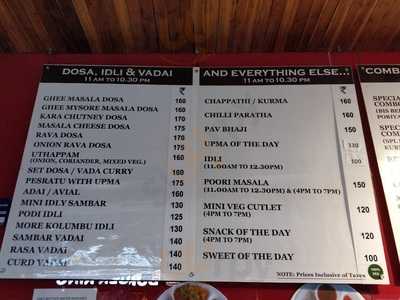 DOSA, IDLI & VADAI
11 AM TO 10.30 PM
₹
GHEE MASALA DOSA 160
GHEE MYSORE MASALA DOSA 160
KARA CHUTNEY DOSA 170
MASALA CHEESE DOSA 175
RAVA DOSA 170
ONION RAVA DOSA 175
UTHAPPAM 160
(ONION, CORIANDER, MIXED VEG.)
SET DOSA / VADA CURRY 160
PESRATU WITH UPMA 175
ADAI / AVIAL 160
MINI IDLY SAMBAR 130
PODI IDLI 125
MORE KOLUMBU IDLI 130
SAMBAR VADAI 140
RASA VADAI 140
CURD VADAI 140
AND EVERYTHING ELSE...
11 AM TO 10.30 PM
₹
CHAPPATHI / KURMA 160
CHILLI PARATHA 160
PAV BHAJI 150
UPMA OF THE DAY
IDLI
(11.00AM TO 12.30PM)
POORI MASALA 150
(11.00AM TO 12.30PM) & (4PM TO 7PM)
MINI VEG CUTLET 120
(4PM TO 7PM)
SNACK OF THE DAY 120
(4PM TO 7PM)
SWEET OF THE DAY 100
NOTE: Prices Inclusive of Taxes
SPECIAL